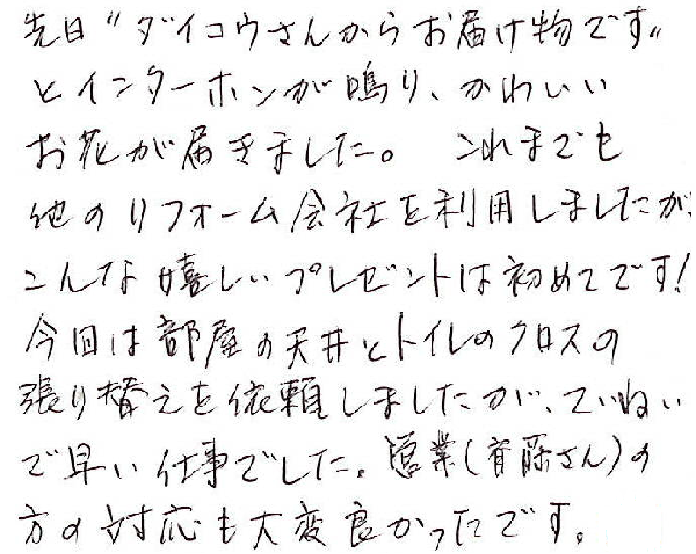 先日"ダイコウさんからお届け物です"
とインターホンが鳴り、かわいい
お花が届きました。 これまでも
他のリフォーム会社を利用しましたが、
こんな嬉しいプレゼントは初めてです!
今回は部屋の天井とトイレのクロスの
張り替えを依頼しましたが、ていねい
で早い仕事でした。営業(斉藤さん)の
方の対応も大変良かったです。